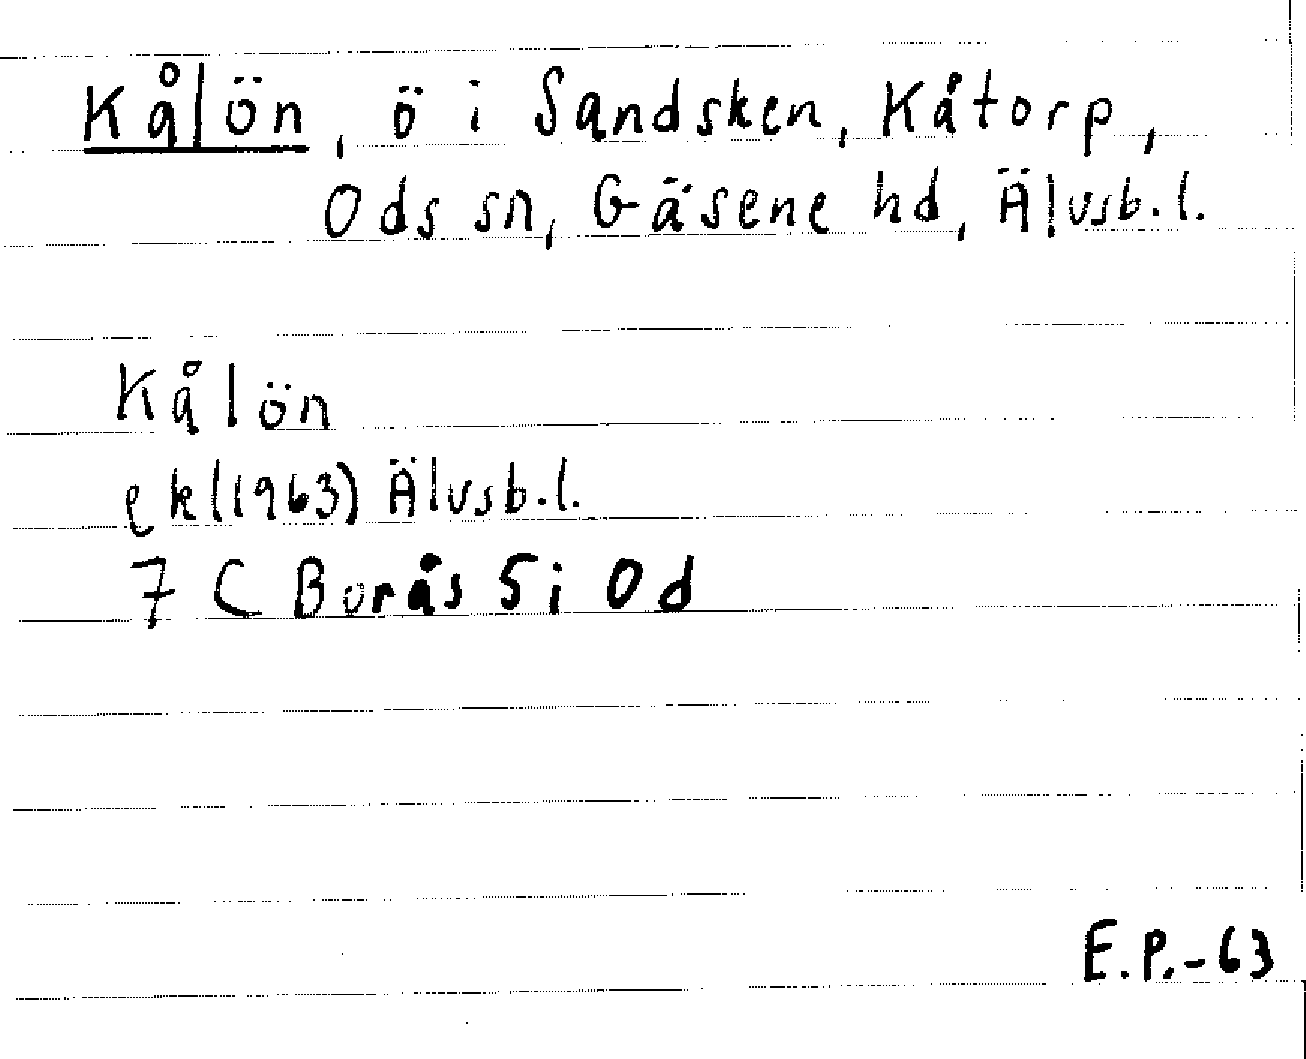 Kålön, ö i Sandsken, Kåtorp,
Ods sn, Gäsene hd, Älvsb.l.
Kålön
ek(1963) Älvsb.l.
7 C Borås 5i Od
E.P.-63